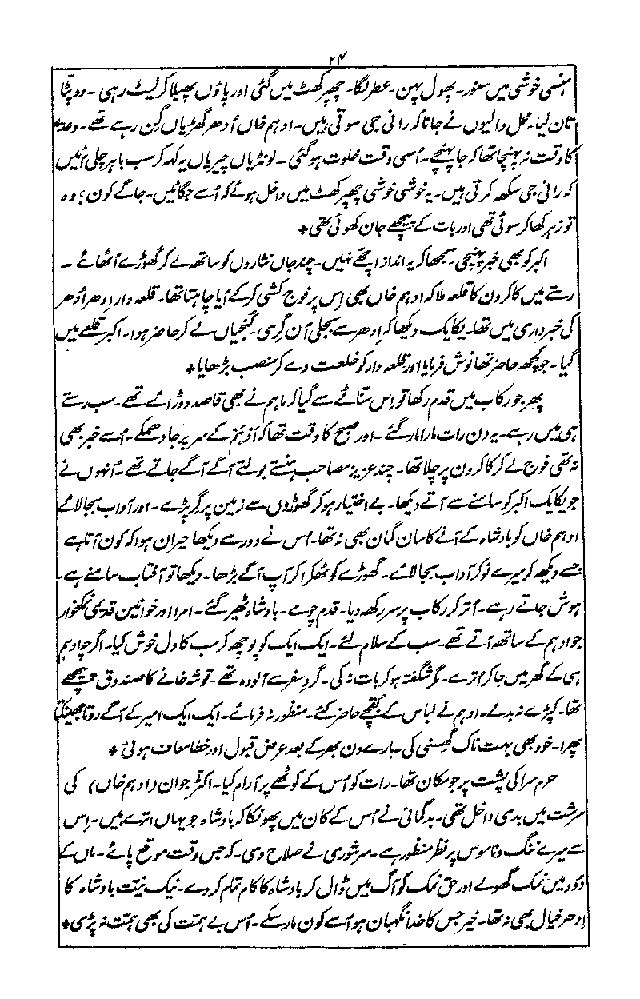 ۲۴
ہنسی خوشی میں سنور۔ پھول پہن۔ عطر لگا۔ چھپر کھٹ میں گئی اور پاؤں پھیلا کر لیٹ رہی۔ دوپٹا
تان لیا۔ محل والیوں نے جانا کہ رانی جی سوتی ہیں۔ ادہم خاں اُدھر گھڑیاں گن رہے تھے۔ وعدہ
کا وقت نہ پہنچا تھا کہ جا پہنچے۔ اُسی وقت خلوت ہو گئی۔ لونڈیاں چیریاں یہ کہہ کر سب باہر چلی آئیں
کہ رانی جی سکھ کرتی ہیں۔ یہ خوشی خوشی چھپر کھٹ میں داخل ہوئے کہ اُسے جگائیں۔ جاگے کون؟ وہ
تو زہر کھا کر سوئی تھی اور بات کے پیچھے جان کھوئی تھی *
اکبر کو بھی خبر پہنچی۔ سمجھا کہ یہ انداز اچھے نہیں۔ چند جاں نثاروں کو ساتھ لے کر گھوڑے اُٹھائے۔
رستے میں کاکرون کا قلعہ ملا کہ ادہم خاں بھی اِس پر فوج کشی کر کے آیا چاہتا تھا۔ قلعہ دار اِدھر اُدھر
کی خبرداری میں تھا۔ یکایک دیکھا کہ اِدھر سے بجلی آن گری۔ کنجیاں لے کر حاضر ہوا۔ اکبر قلعے میں
گیا۔ جو کچھ حاضر تھا نوش فرمایا اور قلعہ دار کو خلعت دے کر منصب بڑھایا *
پھر جو رکاب میں قدم رکھا تو اِس سناٹے سے گیا کہ ماہم نے بھی قاصد دوڑائے تھے۔ سب رستے
ہی میں رہے۔ یہ دن رات مارا مار گئے۔ اور صبح کا وقت تھا کہ ادہم کے سر پر جا دھمکے۔ اُسے خبر بھی
نہ تھی فوج لے کر کاکرون پر چلا تھا۔ چند عزیز مصاحب ہنستے بولتے آگے آگے جاتے تھے۔ اُنہوں نے
جو یکایک اکبر کو سامنے سے آتے دیکھا۔ بے اختیار ہو کر گھوڑوں سے زمین پر گر پڑے۔ اور آداب بجا لائے
ادہم خاں کو بادشاہ کے آنے کا سان گمان بھی نہ تھا۔ اُس نے دور سے دیکھا حیران ہوا کہ کون آتا ہے
جسے دیکھ کر میرے نوکر آداب بجا لائے۔ گھوڑے کو ٹھکرا کر آپ آگے بڑھا۔ دیکھا تو آفتاب سامنے ہے۔
ہوش جاتے رہے۔ اُتر کر رکاب پر سر رکھ دیا۔ قدم چومے۔ بادشاہ ٹھیر گئے۔ امرا اور خوانین قدیمی نمکخوار
جو ادہم کے ساتھ آتے تھے۔ سب کے سلام لئے۔ ایک ایک کو پوچھ کر سب کا دل خوش کیا۔ اگرچہ ادہم
ہی کے گھر میں جا کر اُترے۔ مگر شگفتہ ہو کر بات نہ کی۔ گردِ سفر سے آلودہ تھے۔ توشہ خانے کا صندوق پیچھے
تھا۔ کپڑے نہ بدلے۔ ادہم نے لباس کے بقچے حاضر کئے۔ منظور نہ فرمائے۔ ایک ایک امیر کے آگے روتا جھینکتا
پھرا۔ خود بھی بہت ناک گھسنی کی۔ بارے دن بھر کے بعد عرض قبول اور خطا معاف ہوئی *
حرم سرا کی پشت پر جو مکان تھا۔ رات کو اُس کے کوٹھے پر آرام کیا۔ اکّر جوان (ادہم خاں) کی
سرشت میں بدی داخل تھی۔ بدگمانی نے اُس کے کان میں پھونکا کہ بادشاہ جو یہاں اُترے ہیں۔ اِس
سے میرے ننگ و ناموس پر نظر منظور ہے۔ سرشوری نے صلاح دی۔ کہ جس وقت موقع پائے۔ ماں کے
دودھ میں نمک گھولے اور حق نمک کو آگ میں ڈال کر بادشاہ کا کام تمام کر دے۔ نیک نیت بادشاہ کا
ادھر خیال بھی نہ تھا۔ خیر جس کا خدا نگہبان ہو اُسے کون مار سکے۔ اُس بے ہمت کی بھی ہمت نہ پڑی *